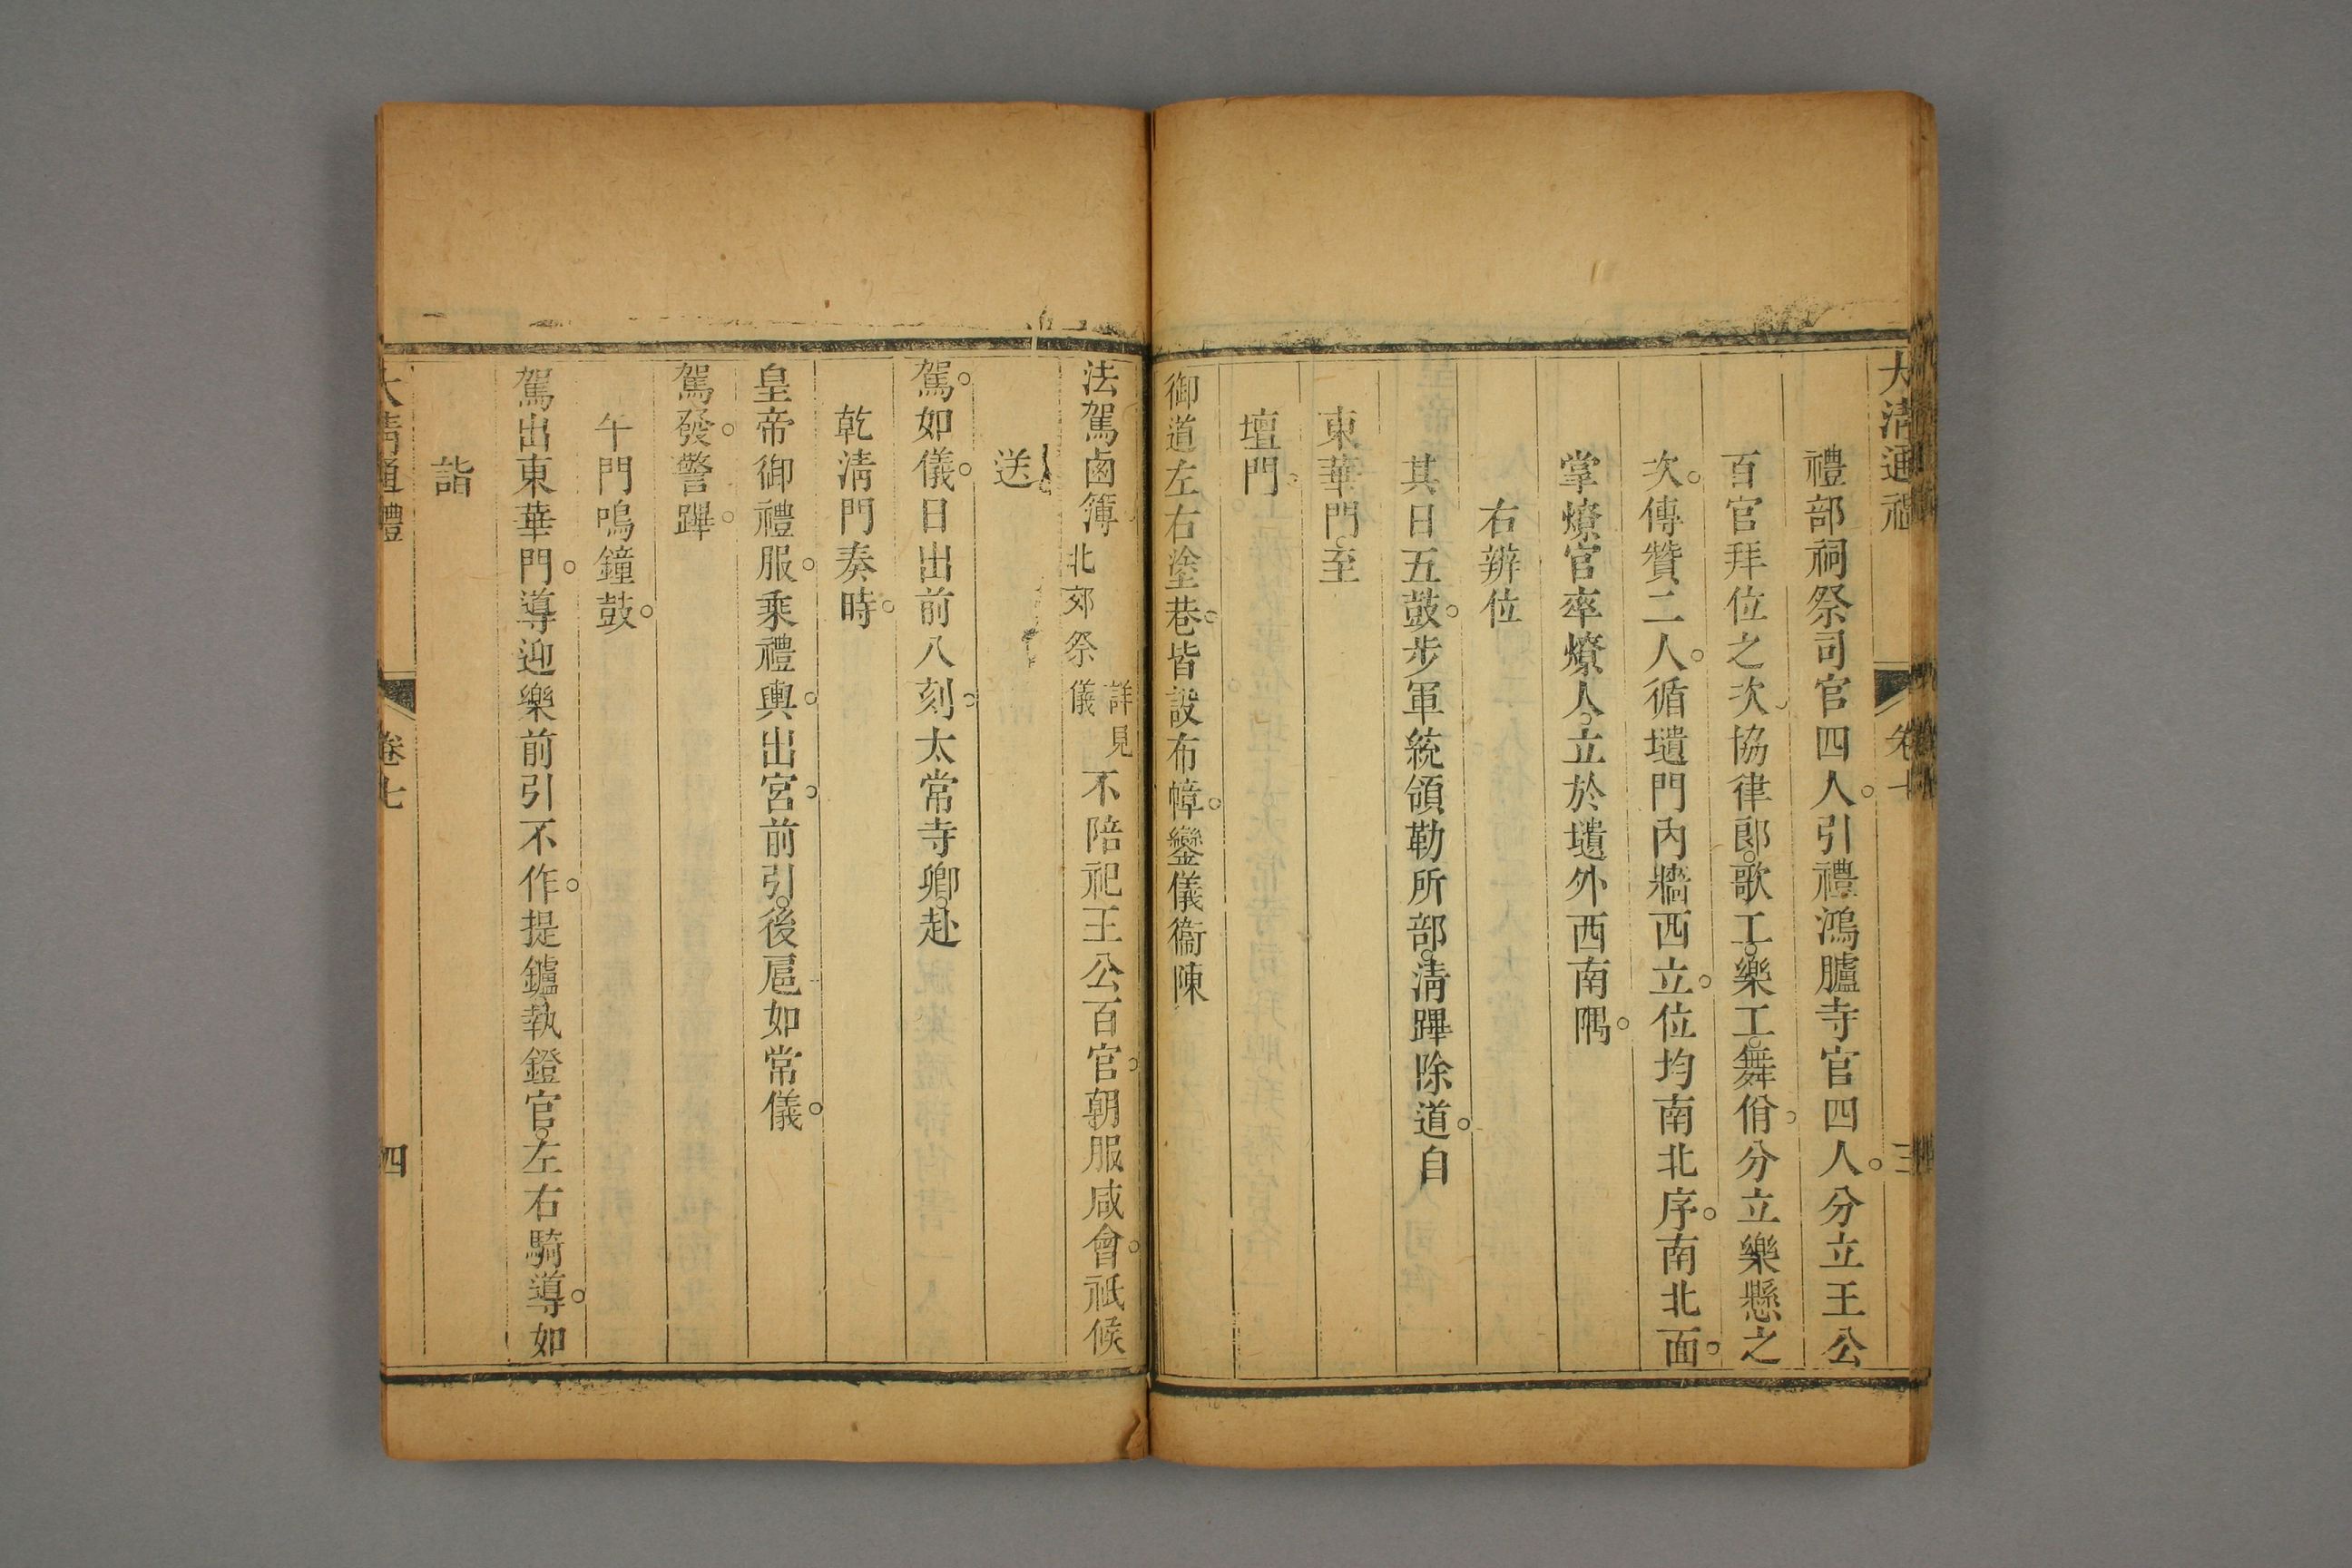 大清通禮 卷七 三
禮部祠祭司官四人。引禮鴻臚寺官四人。分立王公
百官拜位之次。協律郎。歌工。樂工。舞佾。分立樂懸之
次。傳贊二人。循壝門內牆西立。位均南北序。南北面。
掌燎官率燎人。立於壝外西南隅。
右辨位
其日五鼓。步軍統領勒所部。淸蹕除道。自
東華門。至
壇門。
御道左右塗巷。皆設布幛。鑾儀衞陳
法駕鹵簿北郊祭儀詳見不陪祀王公百官。朝服咸會。祇候
送
駕。如儀。日出前八刻。太常寺卿。赴
乾淸門奏時。
皇帝御禮服。乘禮輿。出宮。前引。後扈如常儀。
駕發。警蹕。
午門鳴鐘鼓。
駕出東華門。導迎樂前引不作。提鑪執鐙官。左右騎導。如
詣
大淸通禮 卷七 四